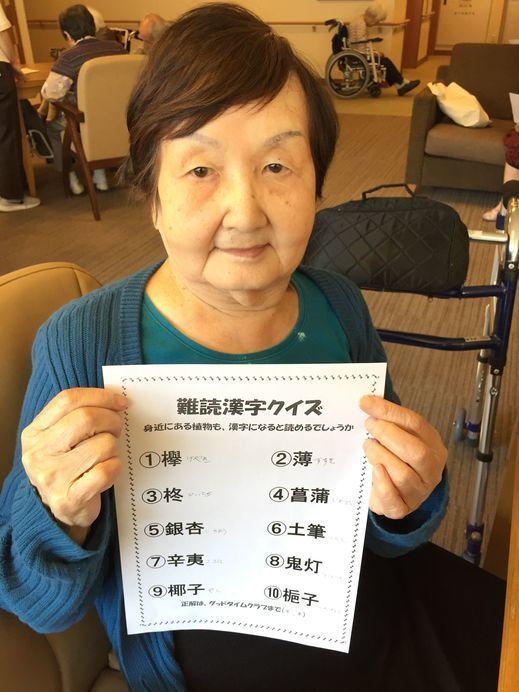 難読漢字クイズ
身近にある植物も、漢字になると読めるでしょうか
①欅 けやき ②薄 すすき
③柊 ④菖蒲
⑤銀杏 ⑥土筆
⑦辛夷 ⑧鬼灯
⑨椰子 ⑩梔子
正解は、グッドタイムクラブまで(^ ^)